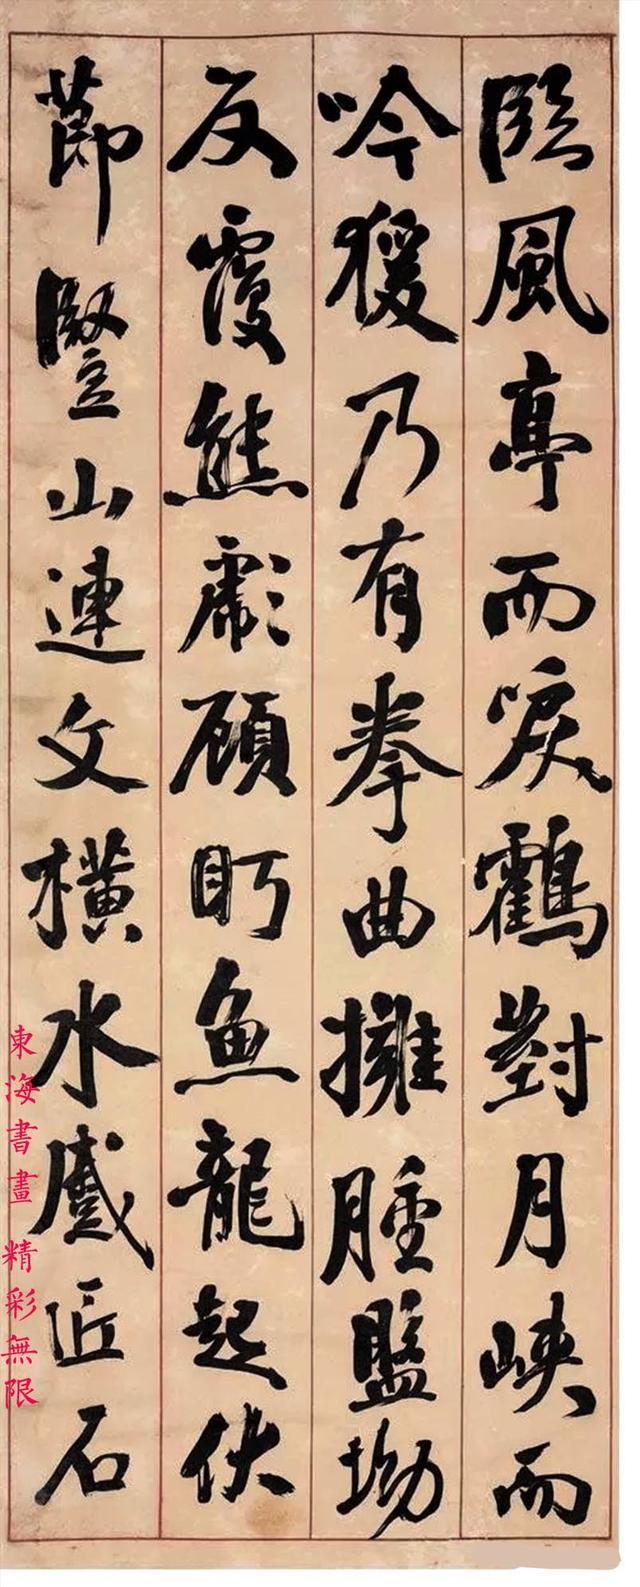 臨風亭而唳鶴對月峽而
吟猨乃有拳曲擁腫盤坳
反覆熊彪顧盼魚龍起伏
節豎山連文橫水蹙匠石
東海書畫 精彩無限